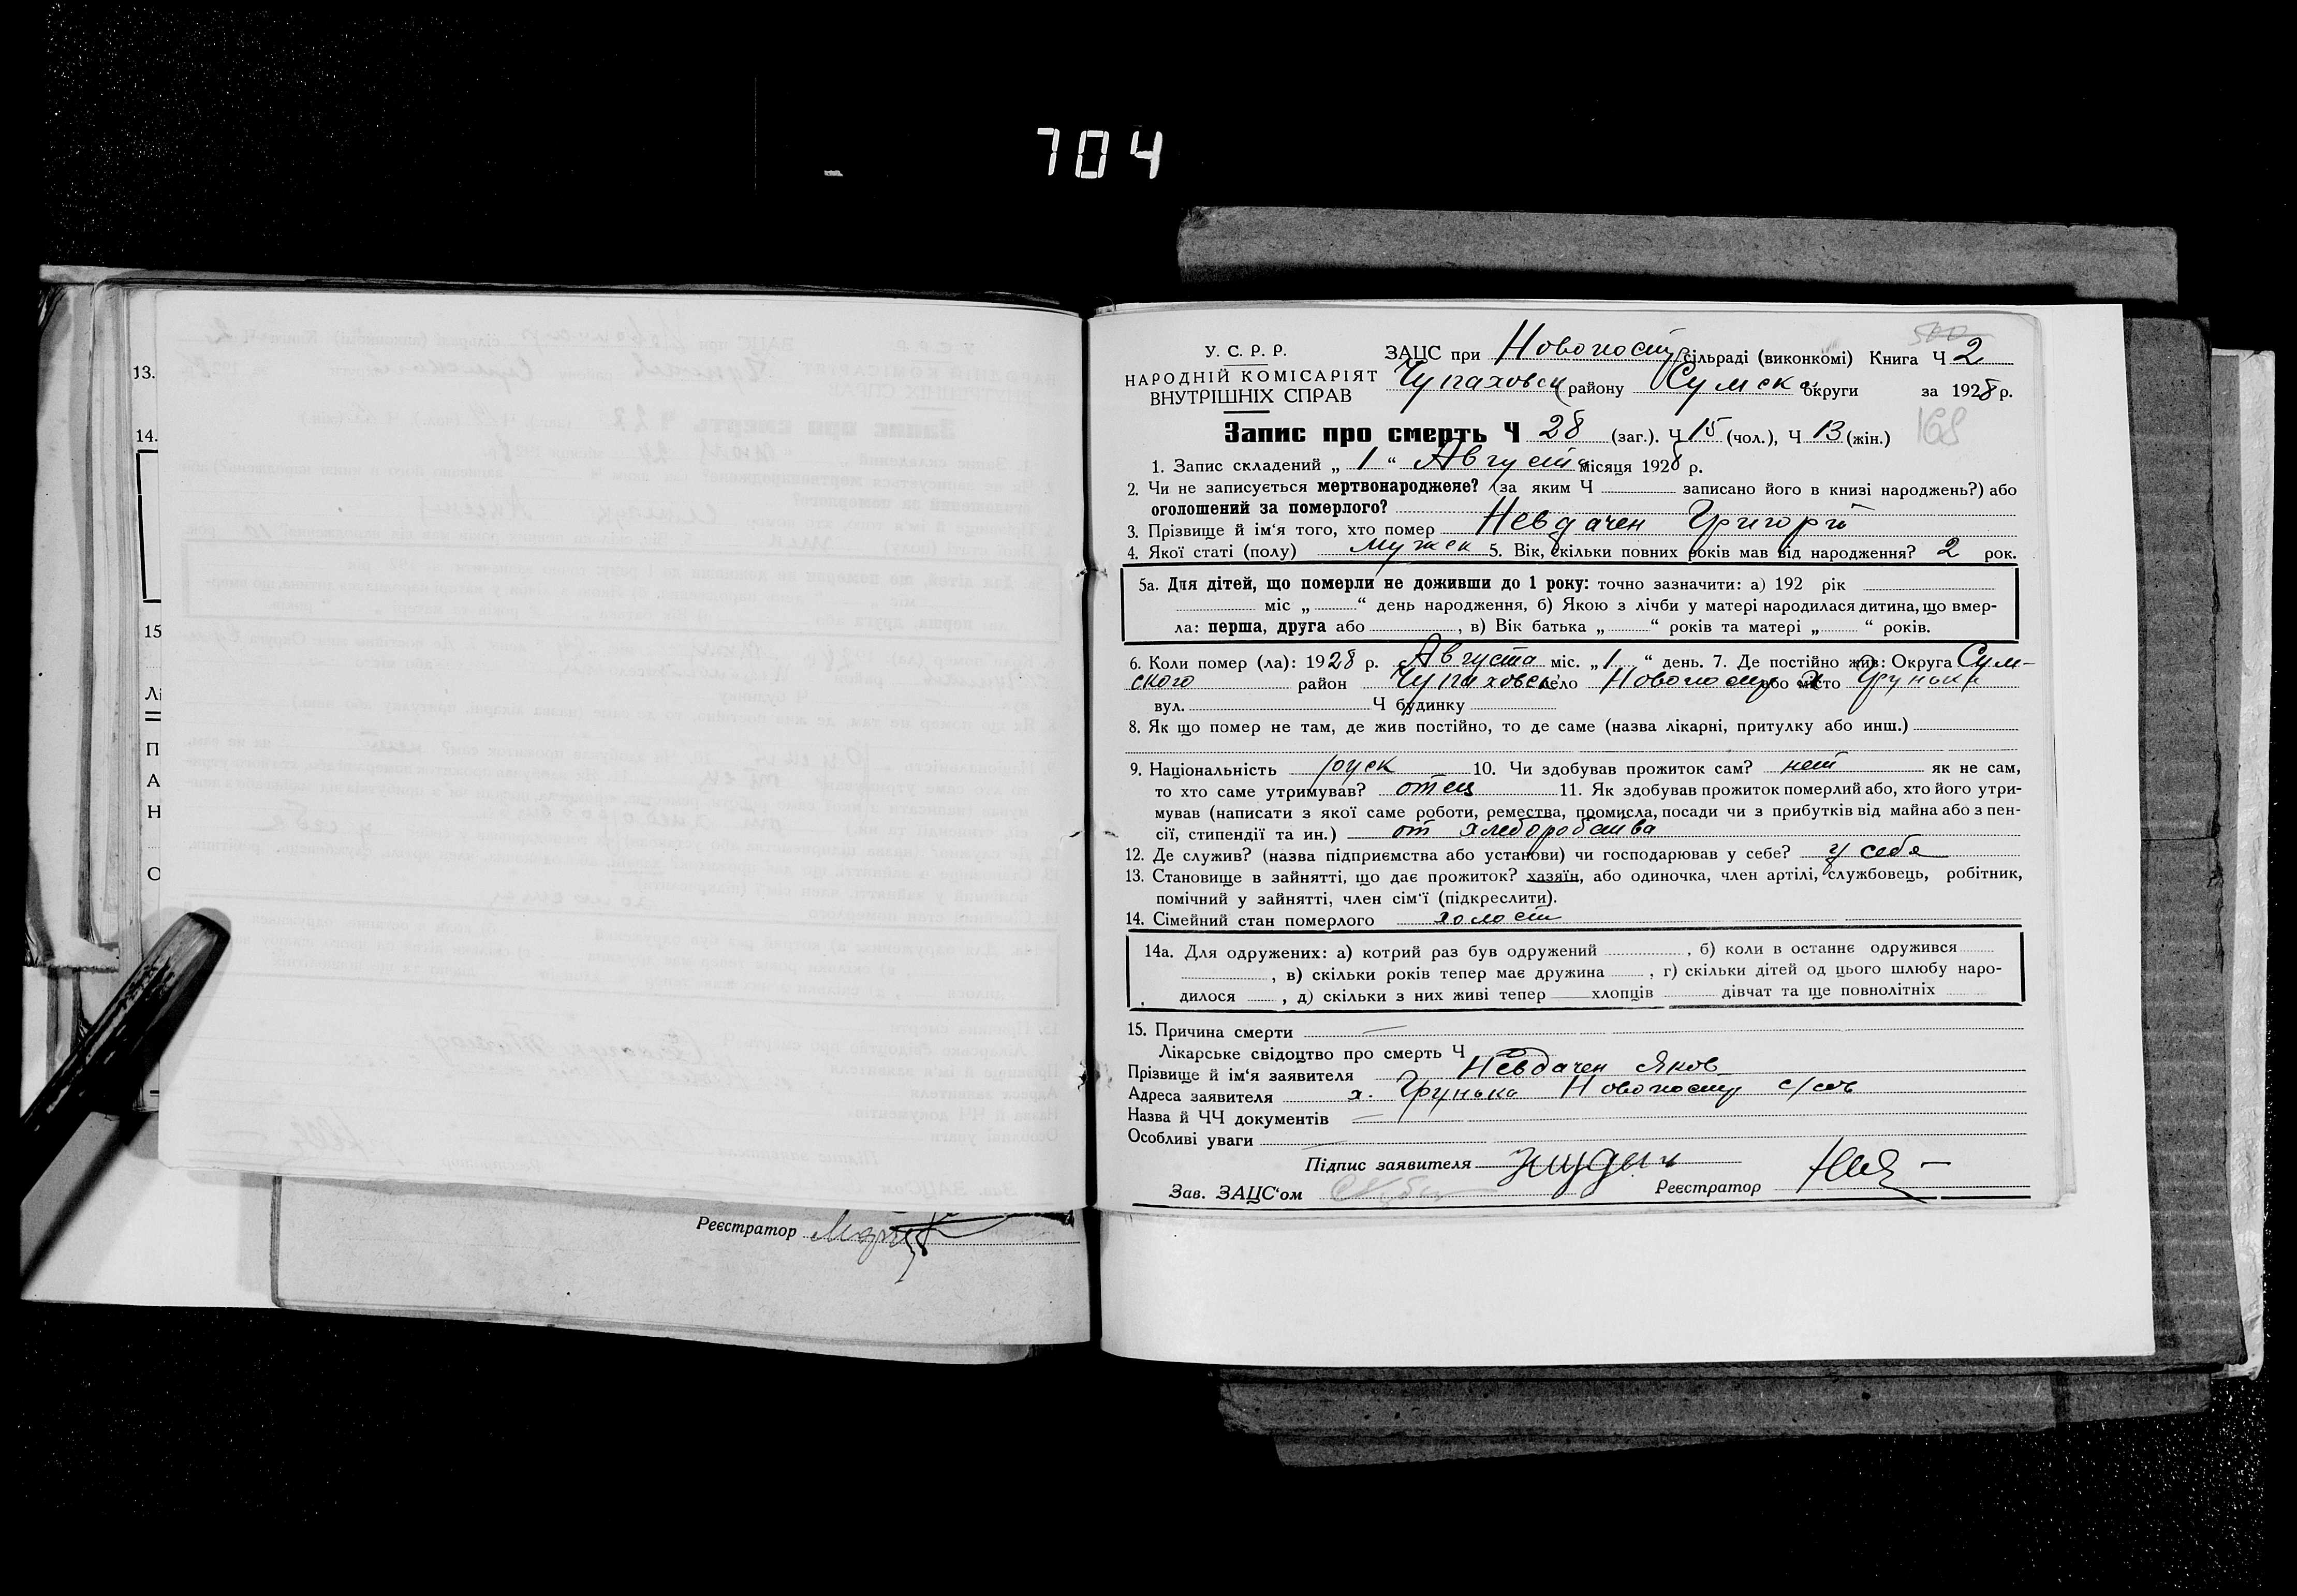 704
13.
14.
15
Лі
П
А
Н
О
Реєстратор
500
У. С. Р. Р.
НАРОДНІЙ КОМІСАРІЯТ
ВНУТРІШНІХ СПРАВ
ЗАЦС при Новопост сільраді (виконкомі) Книга Ч 2
Чупаховск району Сумска округи за 1928 р.
168
Запис про смерть Ч 28 (заг.). Ч 15 (чол.), Ч 13 (жін.)
1. Запис складений „ 1 “ Августа місяця 1928 р.
2. Чи не записується мертвонароджене? (за яким Ч записано його в книзі народжень?) або
оголошений за померлого?
3. Прізвище й ім'я того, хто помер Невдачен Григорій
4. Якої статі (полу) мужск 5. Вік, скільки повних років мав від народження? 2 рок.
5а. Для дітей, що померли не доживши до 1 року: точно зазначити: а) 192 рік
міс „ “ день народження, б) Якою з лічби у матері народилася дитина, що вмер-
ла: перша, друга або , в) Вік батька „ “ років та матері „ “ років.
6. Коли помер (ла): 1928 р. Августа міс. „1 “ день. 7. Де постійно жив: Округа Сум-
ского район Чупаховск село Новопост або місто х Грунька
вул. Ч будинку
8. Як що помер не там, де жив постійно, то де саме (назва лікарні, притулку або инш.)
9. Національність руск 10. Чи здобував прожиток сам? нет як не сам,
то хто саме утримував? отец 11. Як здобував прожиток померлий або, хто його утри-
мував (написати з якої саме роботи, ремества, промисла, посади чи з прибутків від майна або з пен-
сії, стипендії та ин.) от хлеборобства
12. Де служив? (назва підприємства або установи) чи господарював у себе? у себя
13. Становище в зайнятті, що дає прожиток? хазяїн, або одиночка, член артілі, службовець, робітник,
помічний у зайнятті, член сім'ї (підкреслити).
14. Сімейний стан померлого холост
14а. Для одружених: а) котрий раз був одружений , б) коли в останнє одружився
, в) скільки років тепер має дружина , г) скільки дітей од цього шлюбу наро-
дилося , д) скільки з них живі тепер хлопців дівчат та ще повнолітніх
15. Причина смерти —
Лікарське свідоцтво про смерть Ч
Прізвище й ім'я заявителя Невдачен Яков
Адреса заявителя х. Грунька Новопост с/сов
Назва й ЧЧ документів —
Особливі уваги —
Підпис заявителя
Зав. ЗАЦС'ом Реєстратор